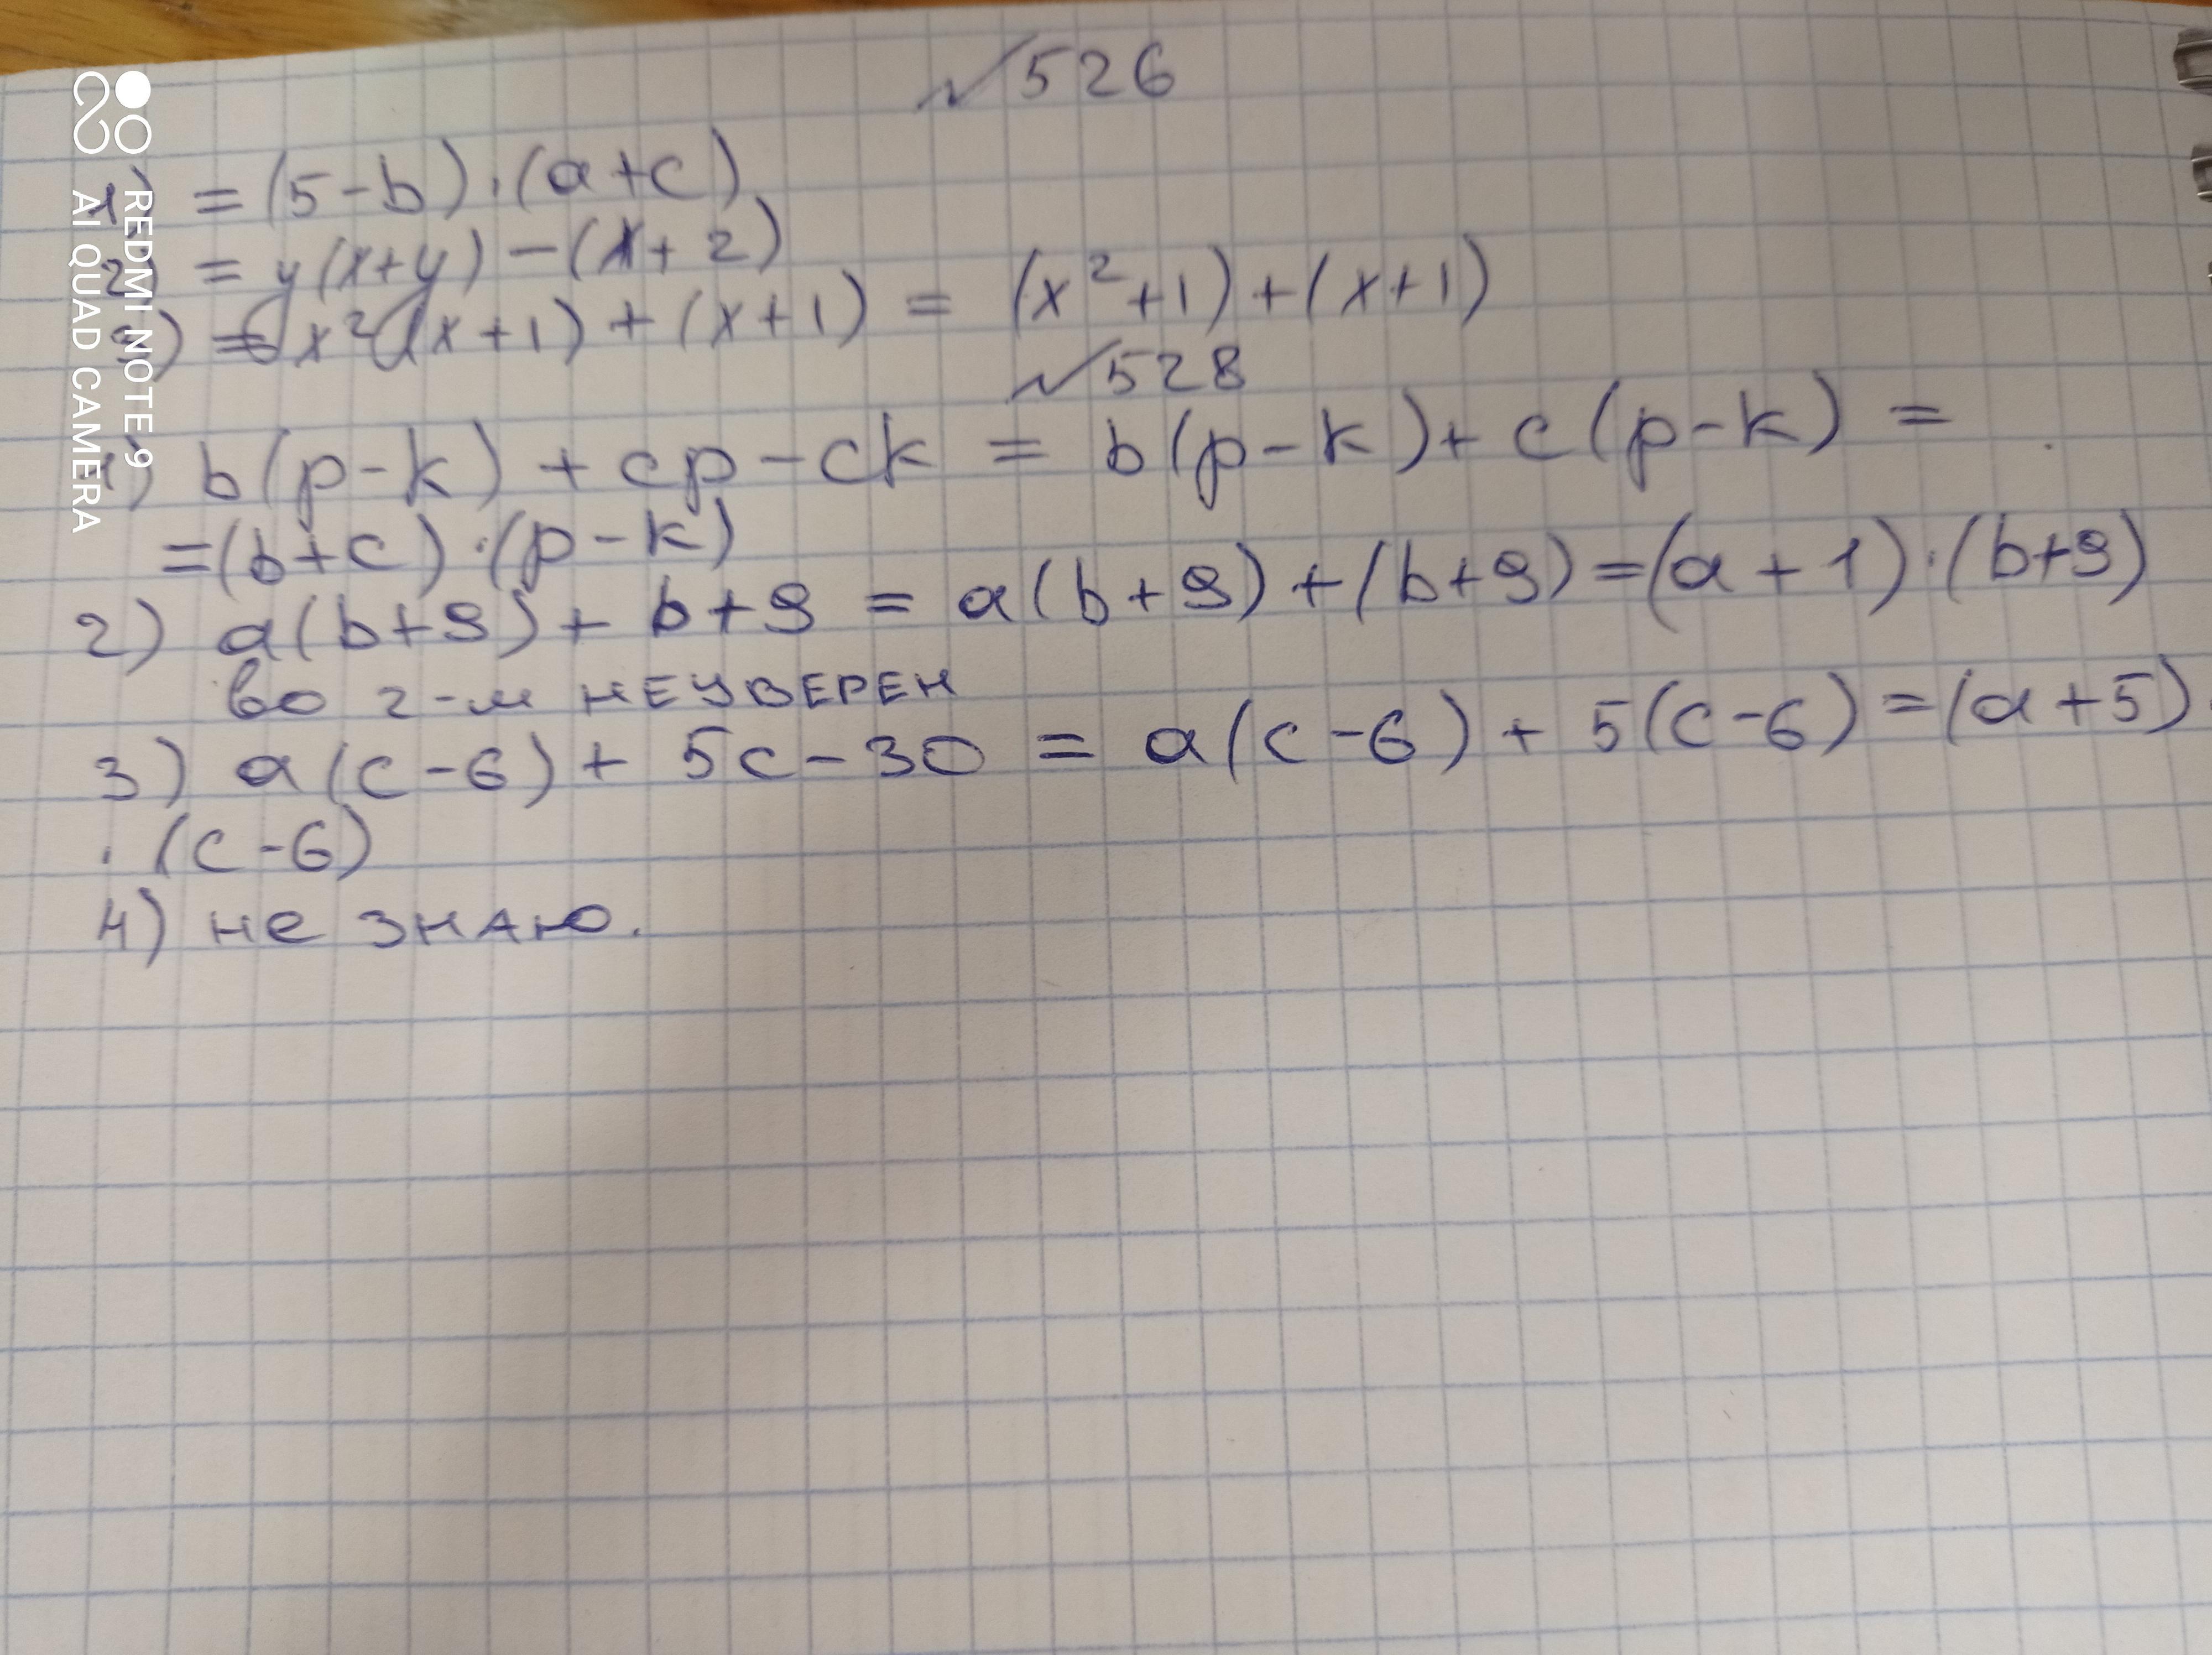 №526
1) = (5-b)·(a+c)
2) = y(x+y) - (x+2)
3) = x²(x+1) + (x+1) = (x²+1)+(x+1)
№528
1) b(p-k) + cp-ck = b(p-k)+c(p-k) =
=(b+c)·(p-k)
2) a(b+9)+b+9 = a(b+9)+(b+9)=(a+1)·(b+9)
во 2-м НЕУВЕРЕН
3) a(c-6)+5c-30 = a(c-6)+5(c-6)=(a+5)·
·(c-6)
4) не знаю.
REDMI NOTE 9
AI QUAD CAMERA